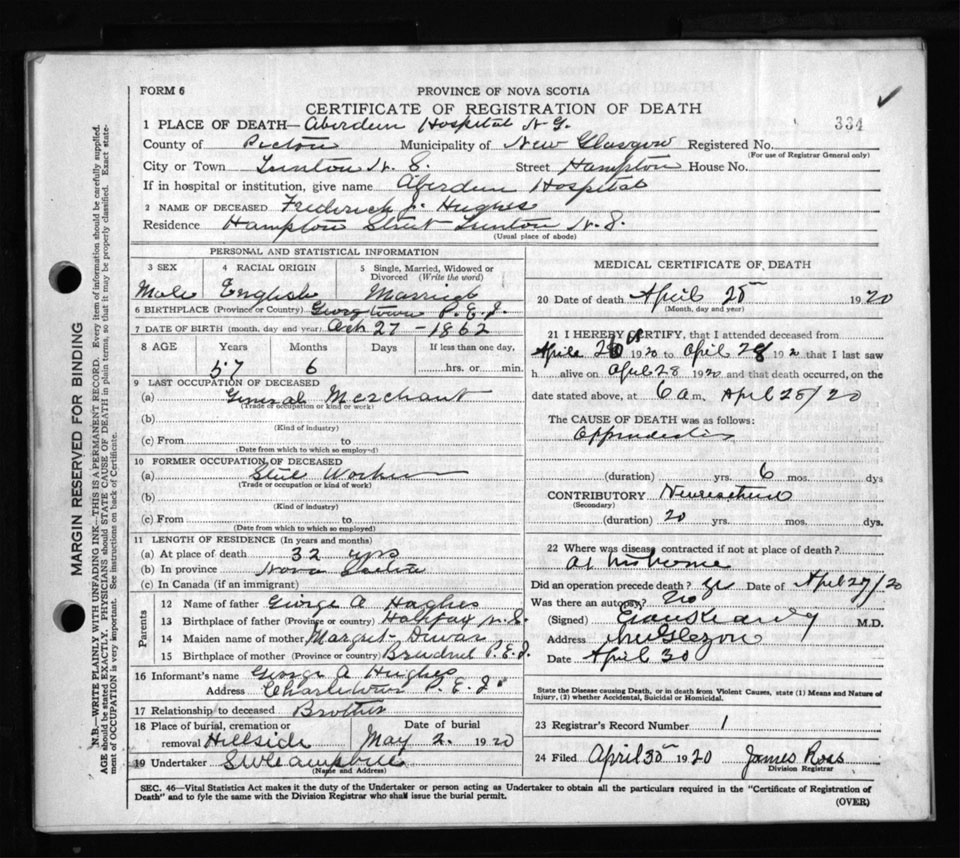 FORM 6
PROVINCE OF NOVA SCOTIA
CERTIFICATE OF REGISTRATION OF DEATH
334
1 PLACE OF DEATH— Aberdeen Hospital N.G.
County of Pictou Municipality of New Glasgow Registered No.
(For use of Registrar General only)
City or Town Trenton N. S. Street Hampton House No.
If in hospital or institution, give name Aberdeen Hospital
2 NAME OF DECEASED Frederick J. Hughes
Residence Hampton Street Trenton N. S.
(Usual place of abode)
PERSONAL AND STATISTICAL INFORMATION
3 SEX 4 RACIAL ORIGIN 5 Single, Married, Widowed or Divorced (Write the word)
Male English Married
6 BIRTHPLACE (Province or Country) Georgetown P. E. I.
7 DATE OF BIRTH (month, day and year) Oct 27 - 1862
8 AGE Years Months Days If less than one day,
57 6 hrs. or min.
9 LAST OCCUPATION OF DECEASED
(a) General Merchant
(Trade or occupation or kind of work)
(b)
(Kind of industry)
(c) From to
(Date from which to which so employed)
10 FORMER OCCUPATION OF DECEASED
(a) Steel Worker
(Trade or occupation or kind of work)
(b)
(Kind of industry)
(c) From to
(Date from which to which so employed)
11 LENGTH OF RESIDENCE (In years and months)
(a) At place of death 32 yrs
(b) In province Nova Scotia
(c) In Canada (if an immigrant)
Parents
12 Name of father George A Hughes
13 Birthplace of father (Province or Country) Halifax N. S.
14 Maiden name of mother Margret Dewar
15 Birthplace of mother (Province or country) Brudnel P. E. I.
16 Informant's name George A Hughes
Address Charlottetown P. E. I.
17 Relationship to deceased Brother
18 Place of burial, cremation or removal Hillside
Date of burial May 2. 1920
19 Undertaker
(Name and Address)
MEDICAL CERTIFICATE OF DEATH
20 Date of death April 1920
(Month, day and year)
21 I HEREBY CERTIFY, that I attended deceased from
April 1920 to April 28 192 that I last saw
h alive on April 28 1920 and that death occurred, on the
date stated above, at 6 a.m. April /20
The CAUSE OF DEATH was as follows:
(duration) yrs. 6 mos. dys
CONTRIBUTORY
(Secondary)
(duration) 20 yrs. mos. dys.
22 Where was disease contracted if not at place of death?
At his home
Did an operation precede death? Date of April 27/20
Was there an autopsy? No
(Signed) M.D.
Address
Date April 30
State the Disease causing Death, or in death from Violent Causes, state (1) Means and Nature of
Injury, (2) whether Accidental, Suicidal or Homicidal.
23 Registrar's Record Number 1
24 Filed April 30 1920 James Ross
Division Registrar
SEC. 46—Vital Statistics Act makes it the duty of the Undertaker or person acting as Undertaker to obtain all the particulars required in the "Certificate of Registration of
Death" and to fyle the same with the Division Registrar who shall issue the burial permit.
(OVER)
MARGIN RESERVED FOR BINDING
N.B.—WRITE PLAINLY WITH UNFADING INK—THIS IS A PERMANENT RECORD. Every item of information should be carefully supplied.
AGE should be stated EXACTLY. PHYSICIANS should STATE CAUSE OF DEATH in plain terms, so that it may be properly classified. Exact state-
ment of OCCUPATION is very important. See instructions on back of Certificate.